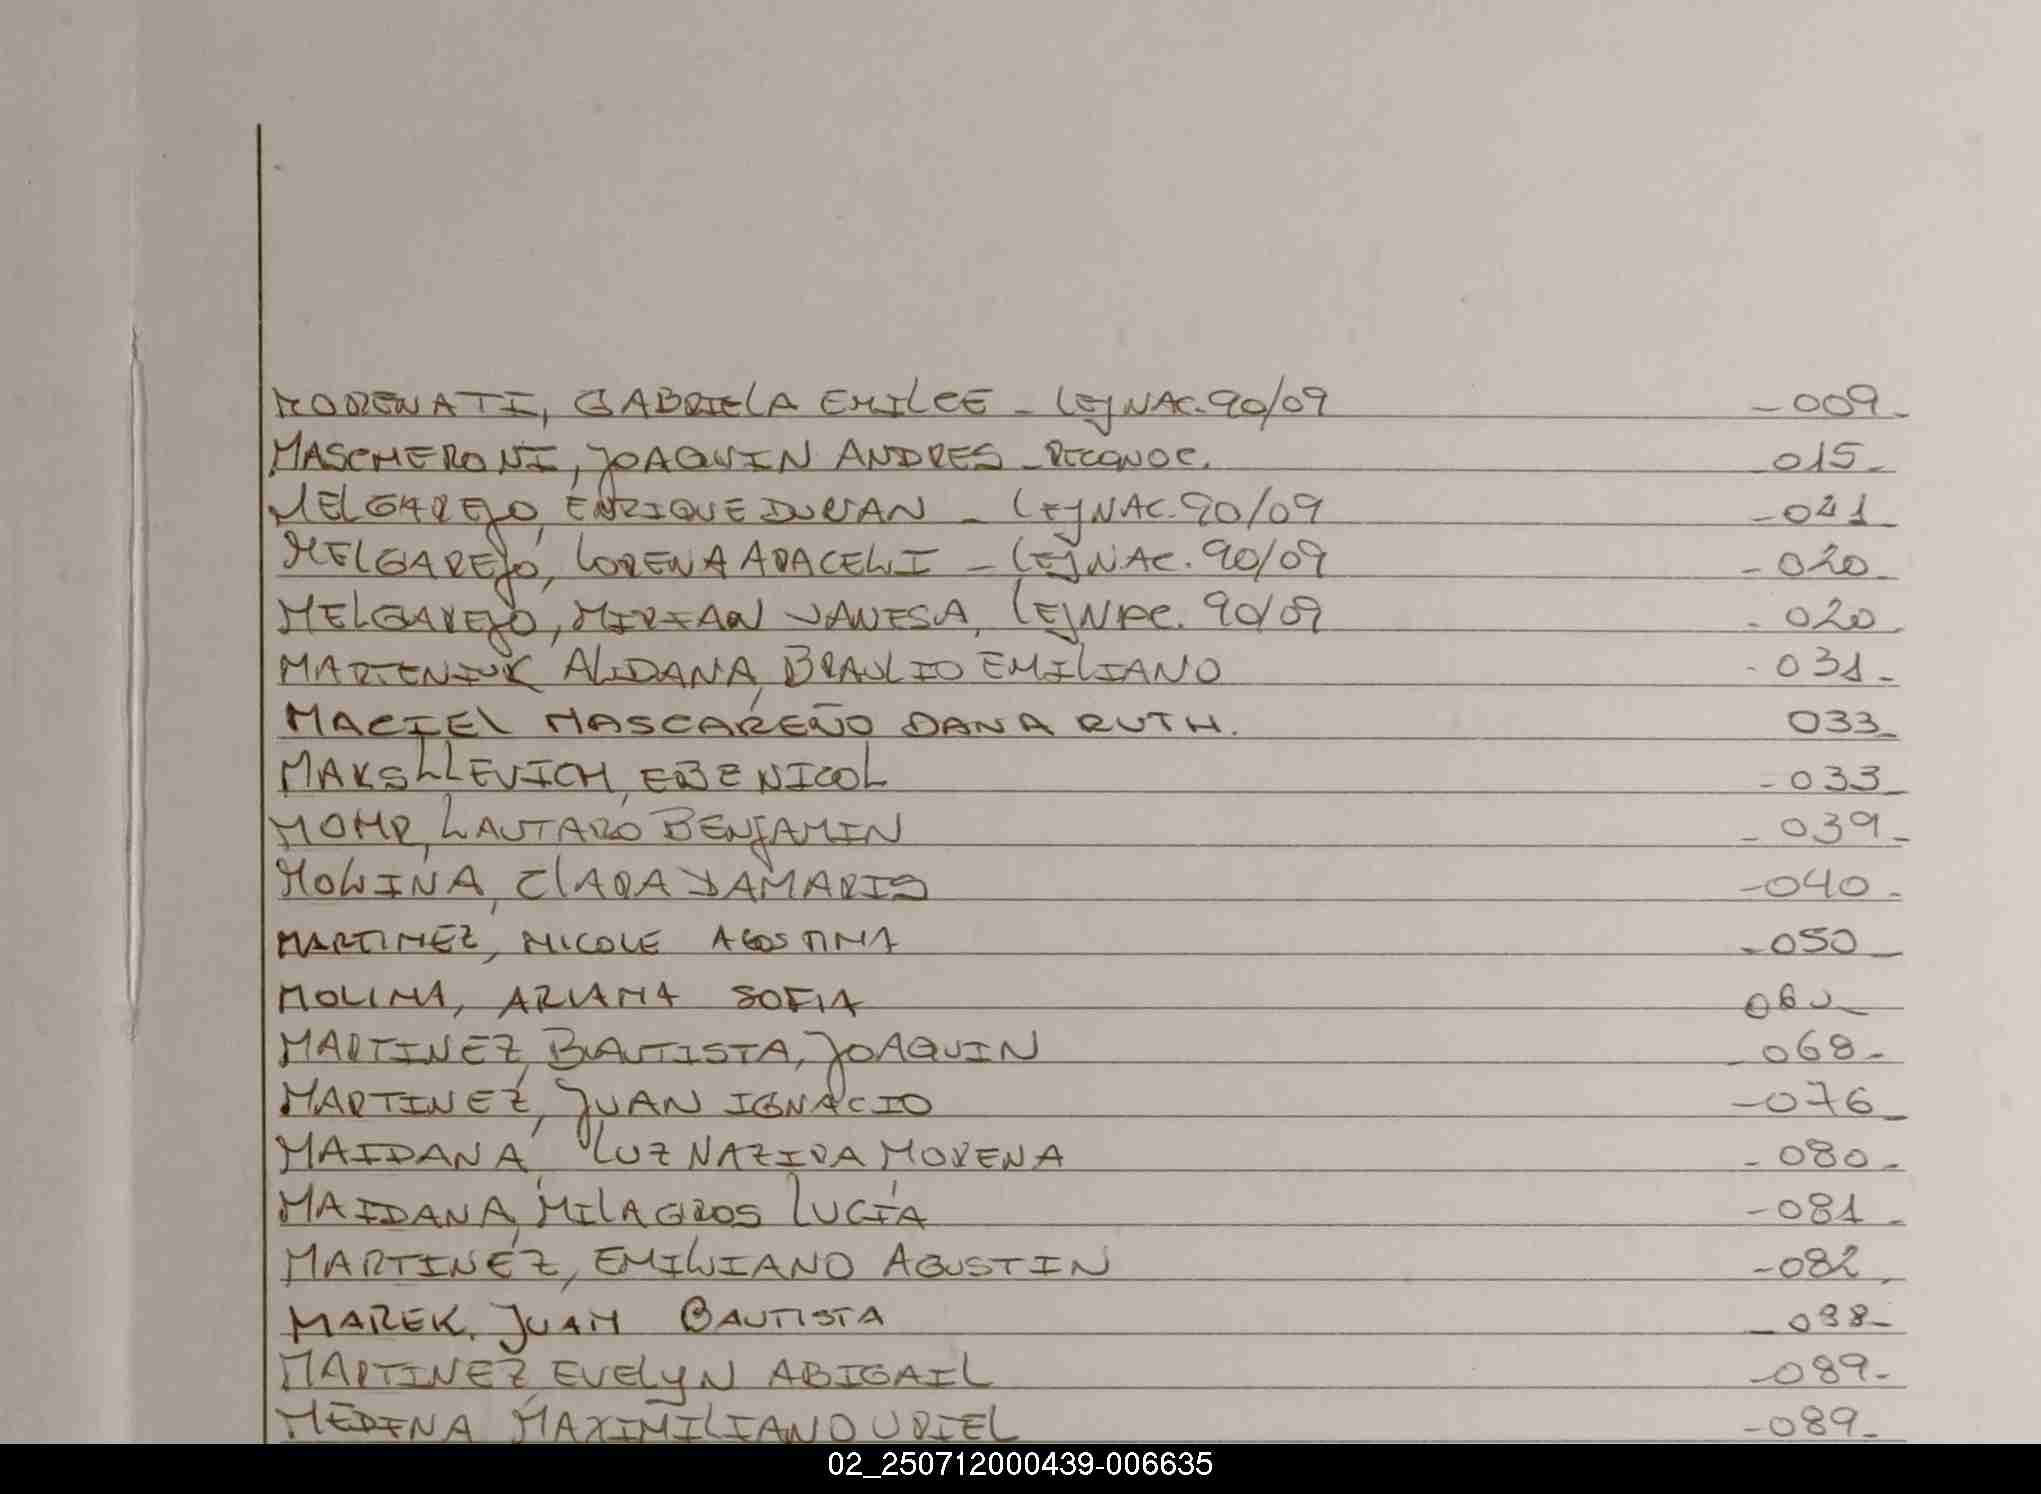 MODENATI, GABRIELA EMILCE - LEJ NAC. 90/09 - 009 -
MASCHERONI, JOAQUIN ANDRES - RECONOC. 015 -
MELGAREJO, ENRIQUE DURIAN - LEJ NAC. 90/09 - 011 -
MELGAREJO, LORENA ARACELI - LEJ NAC. 90/09 - 020 -
MELGAREJO, MIRIAN VANESA, LEJ NAC. 90/09 - 020
MARTENIUK ALDANA, BRAULIO EMILIANO - 031 -
MACIEL MASCAREÑO DANA RUTH. 033 -
MAKSLLEVICH, EBE NICOL - 033 -
MOHR, LAUTARO BENJAMIN - 039 -
MOLINA, CLARA DAMARIS - 040 -
MARTINEZ, NICOLE AGOSTINA - 050 -
MOLINA, ARIANA SOFIA
MARTINEZ, BAUTISTA, JOAQUIN - 068 -
MARTINEZ, JUAN IGNACIO - 076 -
MAIDANA, LUZ NAZIRA MORENA - 080 -
MAIDANA, MILAGROS LUCÍA - 081 -
MARTINEZ, EMILIANO AGUSTIN - 082 -
MAREK, JUAN BAUTISTA - 088 -
MARTINEZ, EVELYN ABIGAIL - 089 -
MEDINA MAXIMILIANO URIEL - 089 -
02_250712000439-006635